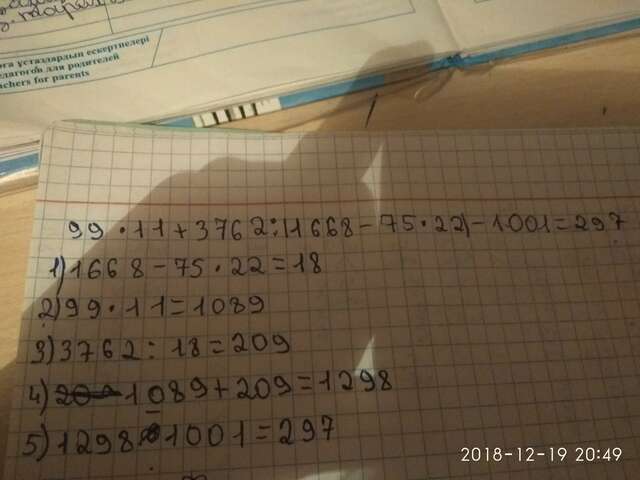 рға ұстаздардың ескертпелері
едагогов для родителей
achers for parents
99 · 11 + 3762 : (1668 - 75 · 22) - 1001 = 297
1) 1668 - 75 · 22 = 18
2) 99 · 11 = 1089
3) 3762 : 18 = 209
4) 1089 + 209 = 1298
5) 1298 - 1001 = 297
2018-12-19 20:49